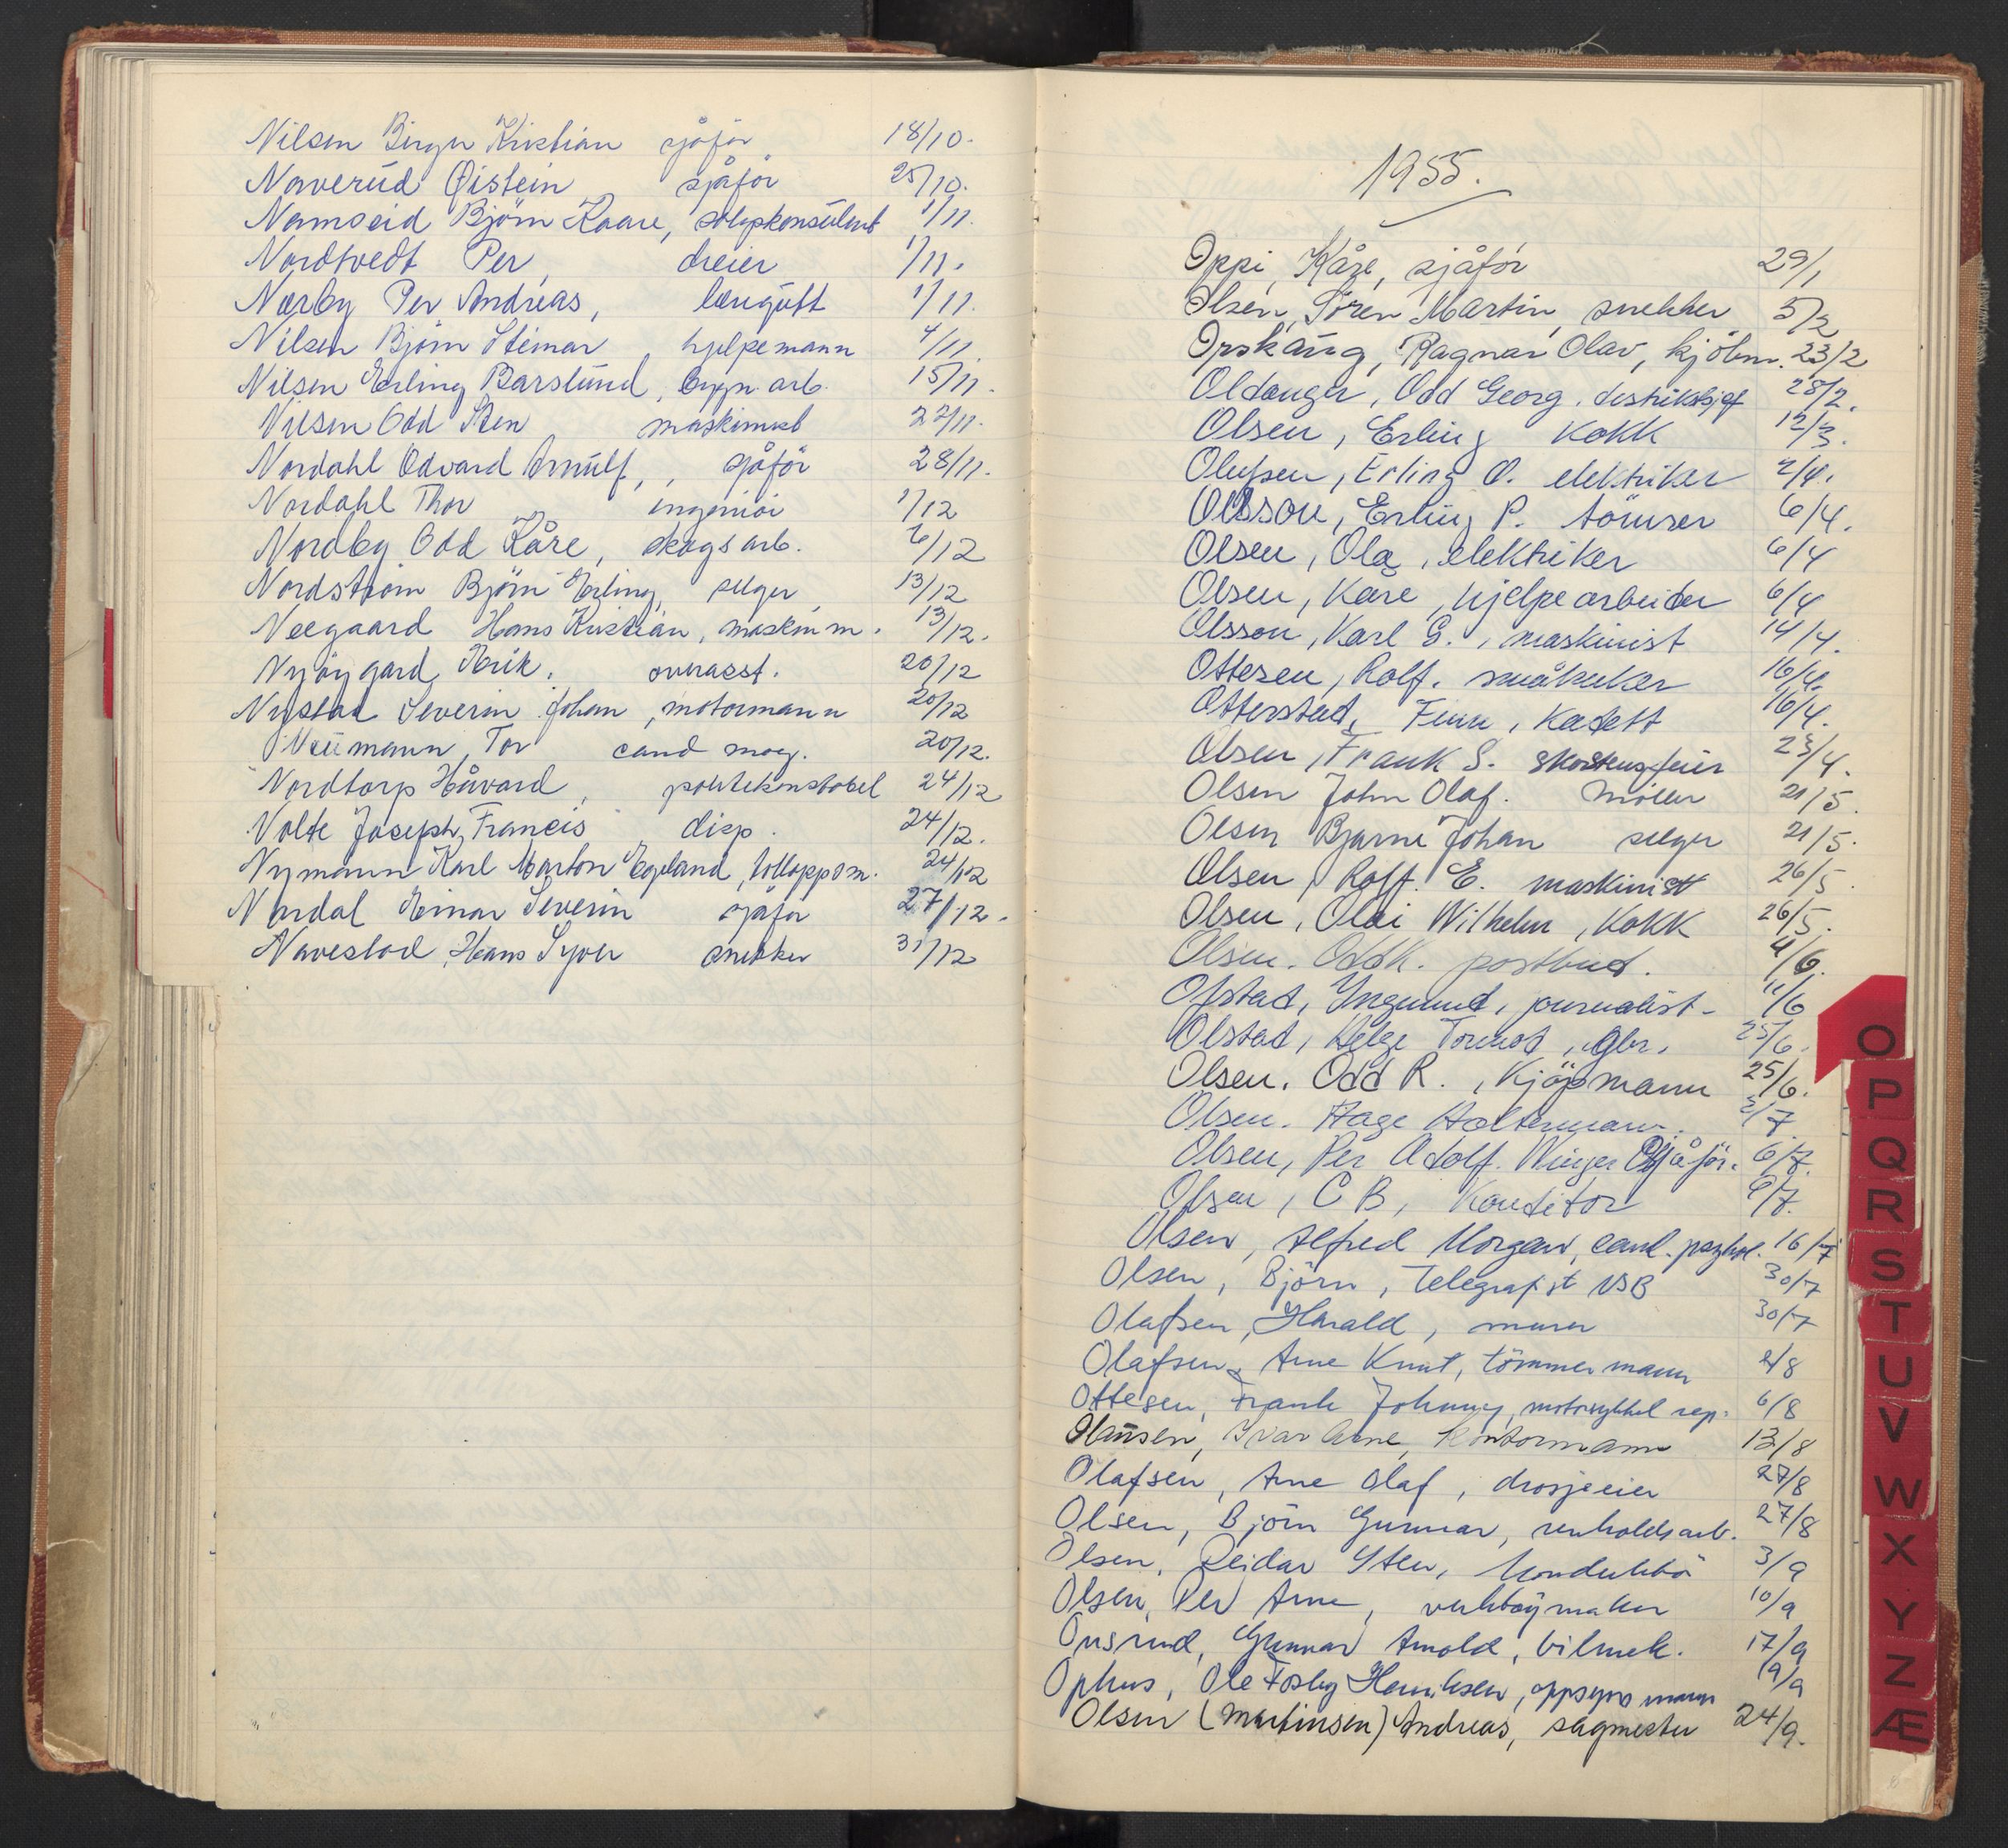 Nilsen Birger Kristian sjåför 18/10.
Naverud Øistein sjåför 25/10.
Namseid Björn Kaare, salgskonsulent 1/11.
Nordtvedt Per, dreier 1/11.
Nærby Per Andreas, læregutt 1/11.
Nilsen Björn Steinar hjelpemann 4/11.
Nilsen Erling Barslund, bygn. arb. 15/11.
Nilsen Odd Sten maskinist 22/11.
Nordahl Edvard Arnulf, sjåför 28/11.
Nordahl Thor ingeniör 1/12
Nordby Odd Kåre, skogsarb. 6/12
Nordström Björn Erling, selger 13/12
Neegaard Hans Kristian, maskinm. 13/12.
Nyöygard Erik. overasst. 20/12
Nystad Severin Johan, motormann 20/12
Neumann, Tor cand mag. 20/12.
Nordtorp Håvard, politikonstabel 24/12
Nolte Joseph Francis disp. 24/12.
Nymann Karl Marton Egeland, tolloppsm. 24/12
Nordal Einar Severin sjåför 27/12.
Navestad, Hans Syver snekker 31/12
1955.
Oppi, Kåre, sjåför 29/1
Olsen, Sören Martin, snekker 5/2
Opskaug, Ragnar Olav, kjölem. 23/2
Oldanger, Odd Georg. distriktsjef 28/2.
Olsen, Erling Kokk 12/3.
Olufsen, Erling O. elektriker 2/4.
Olsson, Erling P. tömrer 6/4.
Olsen, Ola, elektriker 6/4
Olsen, Kåre, hjelpearbeider 6/4
Olsson, Karl G., maskinist 14/4.
Ottesen, Rolf. småbruker 16/4.
Otterstad, Finn, Kadett 16/4.
Olsen, Frank S. skorstensfeier 23/4.
Olsen John Olaf. Möller 21/5.
Olsen Bjarne Johan selger 21/5.
Olsen, Rolf. E. maskinist 26/5.
Olsen, Olai Wilhelm, Kokk 26/5.
Olsen. Odd K. postbud. 4/6.
Ofstad, Yngvund, journalist. 11/6
Olstad, Helge Tormod, gbr. 25/6.
Olsen. Odd R., Kjöpmann 25/6.
Olsen. Hage Holtermann. 2/7
Olsen, Per Adolf. Winger Sjåför. 6/7.
Olsen, C B, Konditor 9/7.
Olsen, Alfred Morgan, cand. psykol. 16/7
Olsen, Björn, Telegrafist NSB 30/7
Olafsen, Harald, murer 30/7
Olafsen, Arne Knut, tömmermann 2/8
Ottesen, Frank Johnny, motorsykkel rep. 6/8
Olaussen, Ivar Arne, Kontormann 13/8
Olafsen, Arne Olaf, drosjeeier 27/8
Olsen, Björn Gunnar, renholdsarb. 27/8
Olsen, Reidar Sten, konduktör 3/9
Olsen, Per Arne, verktöymaker 10/9
Onsrud, Gunnar Arnold, bilmek. 17/9
Ophus, Ole Fosby Henriksen, oppsynsmann 19/9
Olsen (Martinsen) Andreas, sagmester 24/9.
O
P
Q
R
S
T
U
V
W
X
Y
Z
Æ